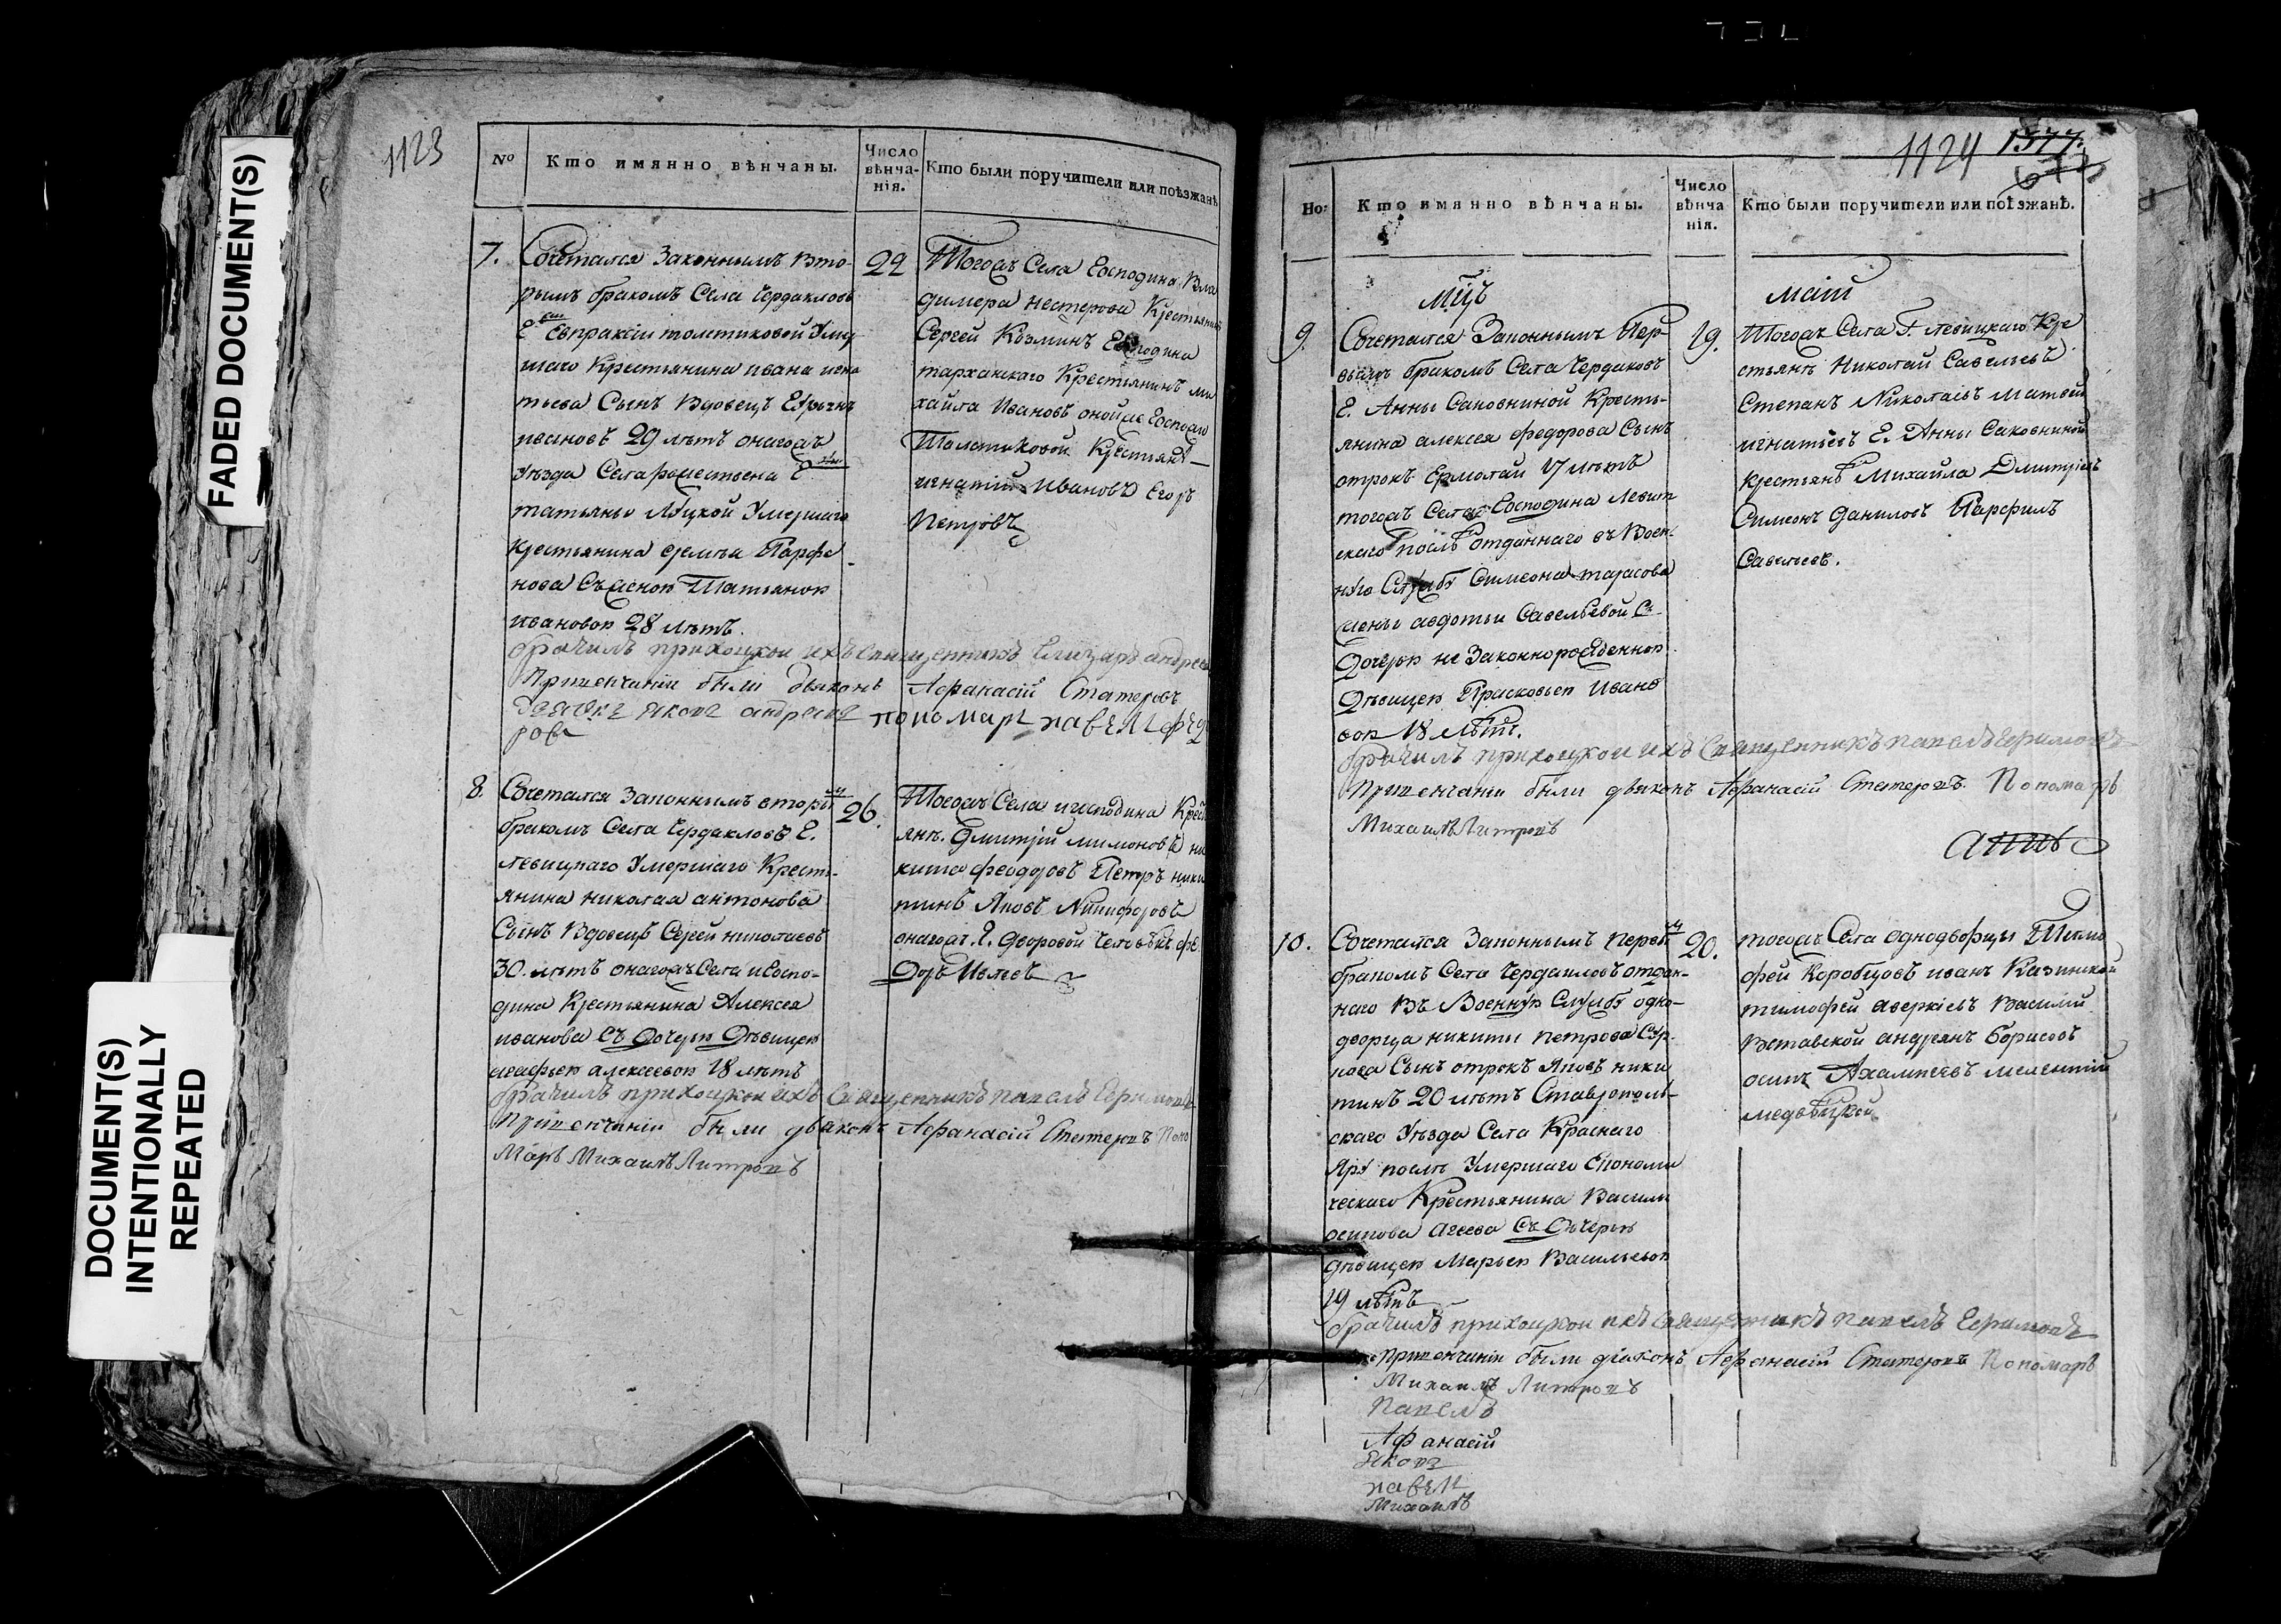 FADED DOCUMENT(S)
DOCUMENT(S)
INTENTIONALLY
REPEATED
1123
№
Кто имянно вѣнчаны.
Число
вѣнча-
нія.
Кто были поручители или поѣзжанѣ
7.
Сочетался Законнымъ вто-
рымъ бракомъ Села Чердакловъ
Евпраксіи толстиковой Умер
шаго Крестьянина ивана игна
тьева Сынъ Вдовецъ
ивановъ 29 лѣтъ онагожъ
уѣзда Села
татьяны Умершаго
крестьянина Парфе
нова Съ женою Татьяною
ивановою 28 лѣтъ.
22
Тогожъ Села Господина Вла
димера нестерова Крестьянинъ
Сергей Козминъ Господина
тарханскаго Крестьянинъ ми
хайла Ивановъ онойже Господи
Толстиковой Крестьянѣ
игнатій Ивановъ Егоръ
Петровъ
брачилъ прихоцкой ихъ священникъ Елизаръ андреев
Привенчаніи были дьяконъ Афанасій Статеровъ
Дьячокъ яковъ андреевъ пономарь павелъ федо
ровъ
8.
Сочетался Законнымъ вторым
бракомъ Села Чердакловъ Г.
левицкаго Умершаго Кресть-
янина николая антонова
Сынъ Вдовецъ Сергей николаевъ
30. лѣтъ онагожъ Села и Госпо-
дина Крестьянина Алексея
иванова Съ Дочерью Дѣвицею
агафьею алексеевою 18 лѣтъ
26.
Тогожъ Села игосподина Крест
янѣ. Дмитрій лимоновъ ни
кита феодоровъ Петръ ники
тинъ Яковъ Никифоровъ
онагожъ Г. дворовой человѣкъ фе
доръ Ивлевъ
брачилъ прихоцкой ихъ Священникъ павелъ Ефимовъ
Привенчаніи были дьяконъ Афанасій Статеровъ Поно
марь Михаилъ Питровъ
1124
1577.
Но:
Кто имянно вѣнчаны.
Число
вѣнча
нія.
Кто были поручители или поѣзжанѣ.
мцъ
маій
9.
Сочетался Законнымъ Пер-
вымъ бракомъ Села Чердаковъ
Г. Анны Саковниной Кресть-
янина алексея федорова Сынъ
отрокъ Ермолай 17 лѣтъ
тогожъ Села Господина Левит
скаго послѣ отданнаго въ Воен-
ную Службу Симеона тарасова
жены авдотьи Савельевой Съ
Дочерью не Законнорожденною
Дѣвицею Прасковьею Ивано
вою 18 лѣтъ.
19.
Тогожъ Села Г. левицкаго Кре
стьянѣ Николай Савельевъ
Степанъ Николаевъ Матвей
игнатьевъ Г. Анны Саковниной
крестьянѣ Михайла Дмитріевъ
Симеонъ Даниловъ Парфилъ
Савельевъ.
брачилъ прихоцкой ихъ Священникъ павелъ Ефимовъ
Привенчани были дьяконъ Афанасій Статеровъ. Пономарь
Михаилъ Питровъ
10.
Сочетался Законнымъ первы
бракомъ Села Чердакловъ отдан-
наго Въ Военную Службу одно-
дворца никиты петрова Сур-
кова Сынъ отрокъ Яковъ ники
тинъ 20 лѣтъ Ставрополь-
скаго Уѣзда Села Краснаго
Яру послѣ Умершаго Економи
ческаго Крестьянина Васили
осипова агеева Съ Дочерью
дѣвицею Марьею Васильевою
19 лѣтъ
20.
тогожъ Села однодворцы Тимо
фей Коробцовъ иванъ
тимофей аверкіевъ Василій
андреянъ Борисовъ
осипъ мелентій
медвѣцкой
брачилъ прихоцкой ихъ Священникъ павелъ Ефимовъ
Привенчаніи были діаконъ Афанасій Статеровъ Пономарь
Михаилъ Питровъ
Павелъ
Афанасій
Яковъ
павелъ
Михаилъ